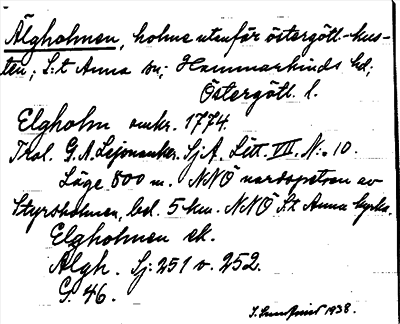 Älgholmen, holme utanför östergötl. kus-
ten; S:t Anna sn; Hammarkinds hd;
Östergötl. l.
Elgholm omkr. 1774.
Trol. G. A. Lejonanker. SjA. Litt. VII. N:o 10.
Läge. 800 m. NNÖ nordspetsen av
Styrsholmen, bel. 5 km. NNÖ S:t Anna kyrka.
Elgholmen ek.
Älgh. Sj: 251 v. 252.
G. 46.
1938.